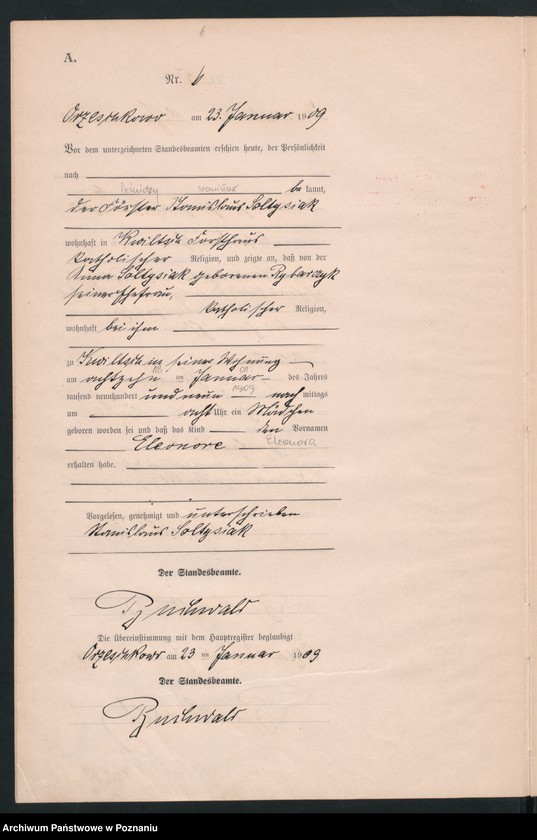 6
A.
Nr. 6
Orzeschkowo am 23. Januar 1909
Vor dem unterzeichneten Standesbeamten erschien heute, der Persönlichkeit
nach
leśniczy be kannt,
der Förster Stanislaus Soltysiak
wohnhaft in Kwiltsch Forsthaus
katholischer Religion, und zeigte an, daß von der
Anna Soltysiak geborenen Rybarczyk
seiner Ehefrau,
katholischer Religion,
wohnhaft bei ihm
zu Kwiltsch in seiner Wohnung
am achtzehn 18 ten Januar 01 des Jahres
tausend neunhundert und neun 1909 nach mittags
um acht Uhr ein Mädchen
geboren worden sei und daß das Kind den Vornamen
Eleonore Eleonora
erhalten habe.
Vorgelesen, genehmigt und unterschrieben
Stanislaus Soltysiak
Der Standesbeamte.
Buchwald
Die Übereinstimmung mit dem Hauptregister beglaubigt
Orzeschkowo am 23 ten Januar 1909
Der Standesbeamte.
Buchwald
Archiwum Państwowe w Poznaniu